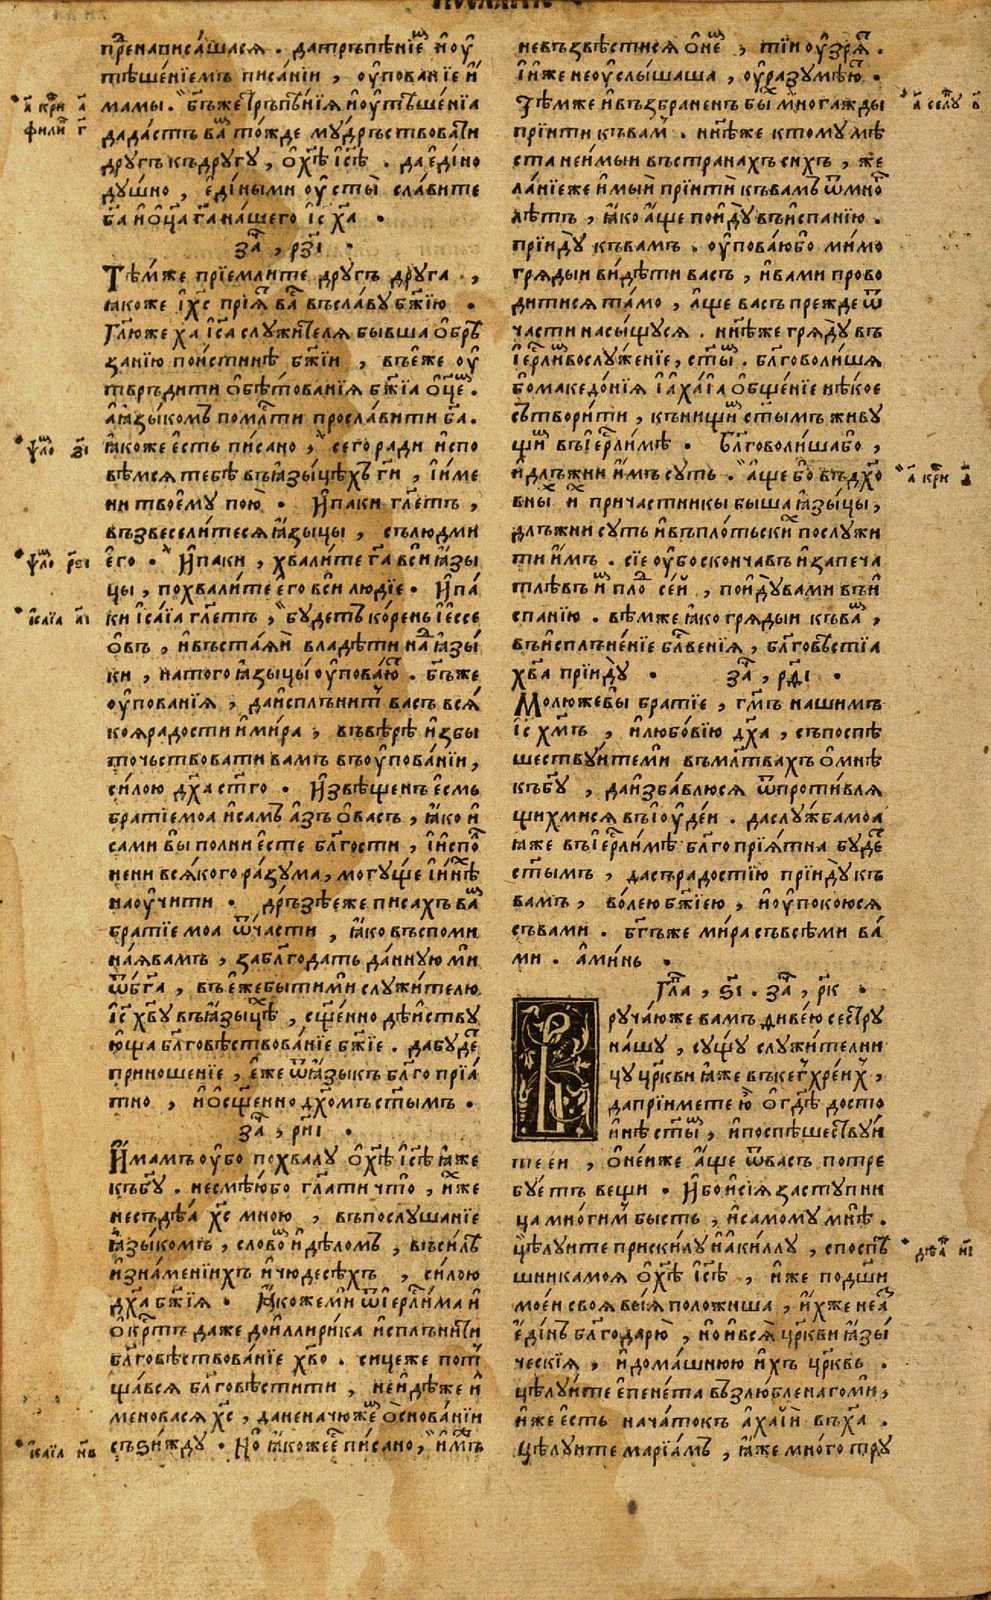 пре́написа́шася . датръпѣнїеⷨ и҆оу҆
тѣше́нїемъ писа́нїи , оу҆пова́нїе и҆
мамы . бг҃ъже тръпѣнїѧ и҆оу҆тѣше́нїа
дада́стъ ва́мⷨ то́жде му́дръствовати
другъ къдругу , о҆ хⷭ҇ѣ і҆сⷭ҇ѣ . да е҆ди́но
ду́шно , е҆ди́ными оу҆сты̀ сла́вите
бг҃а и҆ о҆ц҃а гⷭ҇а на́шего і҆с҃ х҃а .
заⷱ҇ , рз҃і .
Тѣ́мже прїемлите другъ друга ,
ꙗ҆коже і҆ х҃с прїѧ́тⷮ ва́сⷭ въсла́ву бж҃їю .
Гл҃юже х҃а і҆с҃а служи́телѧ бывша о҆брѣ́
занїю пои́стиннѣ бж҃їи , въе҆́же оу҆
твръди́ти о҆бѣтова́нїѧ бж҃їа о҆ц҃еⷨ .
а҆ ꙗ҆зы́комъ помлⷭ҇ти просла́вити бг҃а .
ꙗ҆́коже е҆́сть пи́сано , сего ради и҆спо
вѣмсѧ тебѣ въꙗ҆зы́цѣхъ гⷭ҇и , и҆ и҆ме
ни твоему пою̀ . И҆ па́ки гл҃етъ ,
възвесели́тесѧ ꙗ҆зы́цы , съ людми
е҆го . И҆ па́ки , хвали́те гⷭ҇а вси ꙗ҆зы
цы , похвали́те е҆го вси́ людїе . И҆ па́
ки і҆са́їа гл҃етъ , бу́детъ ко́рень і҆е҆ссе
о҆въ , и҆въста́ѧи владѣ́ти надⷣ ꙗ҆зы́
ки , на того ꙗ҆зы́цы оу҆пова́ютⷮ . бг҃ъже
оу҆пованїѧ , да и҆сплънитъ васъ всѧ́
коѧ ра́дости и҆ми́ра , въ вѣ́рѣ и҆збы
точьствовати вамъ въ оу҆пова́нїи ,
си́лою дх҃а ст҃го . И҆звѣще́нъ е҆смь
братїе моа и҆самъ а҆зъ о҆ васъ , ꙗ҆́ко и҆
сами вы́ полни е҆сте блг҃ости , и҆ и҆споⷧ
нени всѧ́кого ра́зума , могу́ще и҆и҆нѣⷯ
наоу҆чи́ти . дръзѣ́е же писахъ ваⷨ
братїе моа ѿ ча́сти , ꙗ҆ко въспоми
на́ѧ вамъ , за блг҃ода́ть да́нную ми
ѿ бг҃а , въ е҆́же бы́ти ми служи́телю
і҆с҃ хв҃у въ ꙗ҆зы́цѣⷯ , сщ҃е́нно дѣ́йству
ю҆ща блг҃овѣствова́нїе бж҃їе . да буде́тⷮ
приноше́нїе , е҆́же ѿ ꙗ҆зы́къ блг҃о прїа́
тно , и҆ о҆сщ҃е́нно дх҃омъ ст҃ымъ .
заⷱ҇ , рн҃і .
И҆мамъ оу҆́бо похвалу о҆ хⷭ҇ѣ і҆сⷭ҇ѣ ꙗ҆же
къ бг҃у . не смѣ́ю бо гл҃ати что̀ , и҆́хⷯже
не съдѣа хⷭ҇с мною , въ послуша́нїе
ꙗ҆зы́комъ , сло́воⷨ и҆ дѣ́ломъ , въ силѣ
и҆ зна́менїихъ и҆ чюдесѣхъ , си́лою
дх҃а бж҃їѧ . ꙗ҆́коже ми ѿ і҆ерⷭ҇ли́ма и҆
о҆кртⷭ҇ъ даже до и҆ллири́ка и҆сплъни́ти
блг҃овѣствова́нїе хв҃о . сицеже потⷮ
ща́всѧ блг҃овѣсти́ти , не и҆дѣ́же и҆
менова́сѧ хⷭ҇с , да не на чюже́мⷨ о҆снова́нїи
съзи́жду . Но̀ ꙗ҆́коже е҆́стⷭ пи́сано , и҆́мжⷤе
не възвѣсти́сѧ о҆ неⷨ , ті́и оу҆зрѧ́тⷮ .
и҆ и҆́же не оу҆слы́шаша , оу҆разумѣ́ютⷮ .
Тѣ́мже и҆ възбране́нъ бы́хⷯ мно́гажды
прїити къ вамⷨ . нн҃ѣже к тому мѣ́
ста не и҆мы́и въ странахъ сихъ , же
ла́нїе же и҆мы́й прїитѝ къ вамъ ѿ мноⷢ
лѣ́тъ , ꙗ҆ко а҆ще пои҆ду въ и҆спа́нїю .
прїиду къ вамъ . оу҆пова́ю бо ми́мо
грѧды́и ви́дѣти васъ , и҆ вами прово
ди́тисѧ та́мо , а҆ще васъ прежде ѿ
ча́сти насы́щусѧ . нн҃ѣже грѧду въ
і҆ерⷭ҇ли́мⷨ во служе́нїе , ст҃ыⷨ . блг҃оволи́ша
бо македо́нїѧ и҆ а҆ха́їа о҆бще́нїе нѣ́кое
сътвори́ти , къ ни́щиⷨ ст҃ымъ живу
щиⷨ въ і҆ерⷭ҇ли́мѣ . Блг҃оволи́ша бо ,
и҆ длъжни и҆мъ суть . а҆ще бо́ въ дх҃о
вныⷯ и҆хⷯ прича́стникы бы́ша ꙗ҆зы́цы ,
длъжни суть и҆ въ пло́тьскиⷯ послужи́
ти и҆мъ . сїе оу҆бо скончавъ и҆ запеча
тлѣвъ и҆мⷨ плодⷣ се́й , пои҆ду вами въ и҆
спанїю . вѣмже ꙗ҆ко грѧдыи къ ваⷨ ,
въ и҆сплъне́нїе блг҃ве́нїѧ , блг҃овѣ́стїа
хв҃а прїиду . заⷱ҇ , рѳ҃і .
Молю же вы̀ братїе , гⷭ҇мъ нашимъ
і҆с҃ хⷭ҇мъ , и҆ любо́вїю дх҃а , съ поспѣ́
шествуи́те ми въ млт҃вахъ о҆ мнѣ
къ бг҃у , да и҆зба́влюсѧ ѿ проти́влѧ
щихмисѧ въ і҆оу҆де́и . да слу́жба моа
ꙗ҆́же въ і҆ерⷭ҇ли́мѣ блг҃о прїѧ́тна бу́детⷮ
ст҃ымъ , да съ ра́достїю прїиду къ
вамъ , во́лею бж҃їею , и҆ оу҆поко́юсѧ
съ вами . бг҃ъже ми́ра съ всѣ́ми ва́
ми . а҆ми́нь .
Глⷡа҇ , ѕ҃і . заⷱ҇ , рк҃ .
Вруча́ю же вамъ ѳиве́ю сестру
на́шу , су́щу служи́телни
цу цр҃кви ꙗ҆же въ кегхре́иⷯ ,
да прїимете ю҆̀ о҆ гдⷭ҇ѣ досто
и҆нѣ ст҃ыⷨ , и҆ поспѣшествуи
те еи , о҆ не́иже а҆́ще ѿ васъ потре
буетъ вещи . И҆бо и҆ сїѧ засту́пни
ца мно́гимⷨ бысть , и҆ самому мнѣ .
цѣлуите приски́лу и҆ а҆ки́ллу , споспѣ́
шника моѧ о҆ хⷭ҇ѣ і҆сⷭ҇ѣ , и҆́же по дш҃и
мое́и своѧ выѧ положи́ша , и҆́хже не а҆зⷥ
е҆ди́нъ благодарю̀ , но и҆ всѧ цр҃кви ꙗ҆зы́
ческїѧ , и҆ дома́шнюю и҆́хъ цр҃квь .
цѣлуи́те е҆пене́та възлюбленагоми ,
и҆же е҆́сть нача́токъ а҆хаі́и въ х҃а .
цѣлуи́те марїа́мъ , ꙗ҆́же мно́го тру